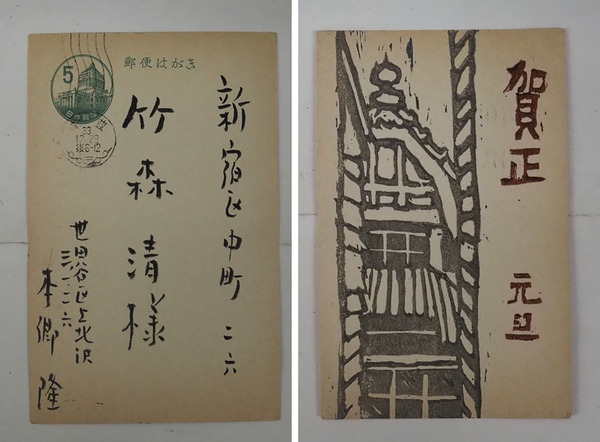 郵便はがき
5
日本郵便
33
後6-12
新宿区中町二六
竹森清様
世田谷区上北沢
三ノ一二六
本郷隆
賀正
元旦